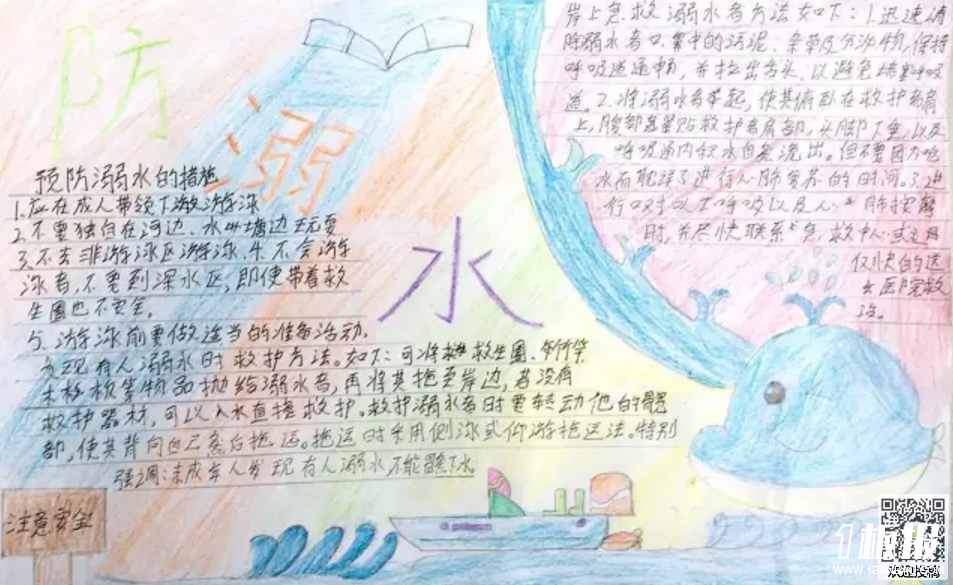 防
溺
水
预防溺水的措施
1.应在成人带领下游泳
2.不要独自在河边、水塘边玩耍
3.不去非游泳区游泳.4.不会游
泳者,不要到深水区,即使带着救
生圈也不安全.
5.游泳前要做适当的准备活动.
发现有人溺水时救护方法。如下:可将救生圈、竹竿
木板等物品抛给溺水者,再将其拖至岸边,若没有
救护器材,可以入水直接救护。救护溺水者时要转动他的髋
部,使其背向自己然后拖运。拖运时采用侧泳或仰游拖运法。特别
强调:未成年人发现有人溺水,不能下水
岸上急救溺水者方法如下:1.迅速清
除溺水者口、鼻中的污泥、杂草及分泌物,保持
呼吸道通畅,并拉出舌头,以避免堵塞呼吸
道。2.将溺水者举起,使其俯卧在救护者肩
上,腹部紧贴救护者肩部,头脚下垂,以及
呼吸道内积水自然流出。但不要因为呛
水而耽误了进行心肺复苏的时间。3.进
行口对口呼吸以及心脏按摩
时,并尽快联系急救中心或主用
仅快的送
去医院救
治。
注意安全
1板报
欢迎投稿